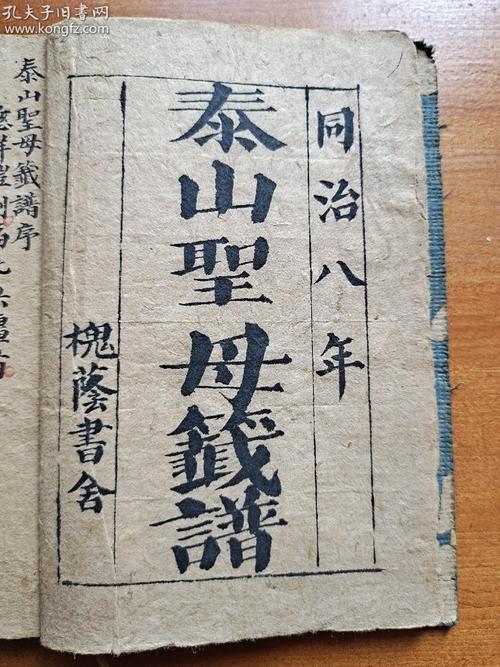 孔夫子旧书网
www.kongfz.com
同治八年
泰山聖母籤譜
槐蔭書舍
泰山聖母籤譜序